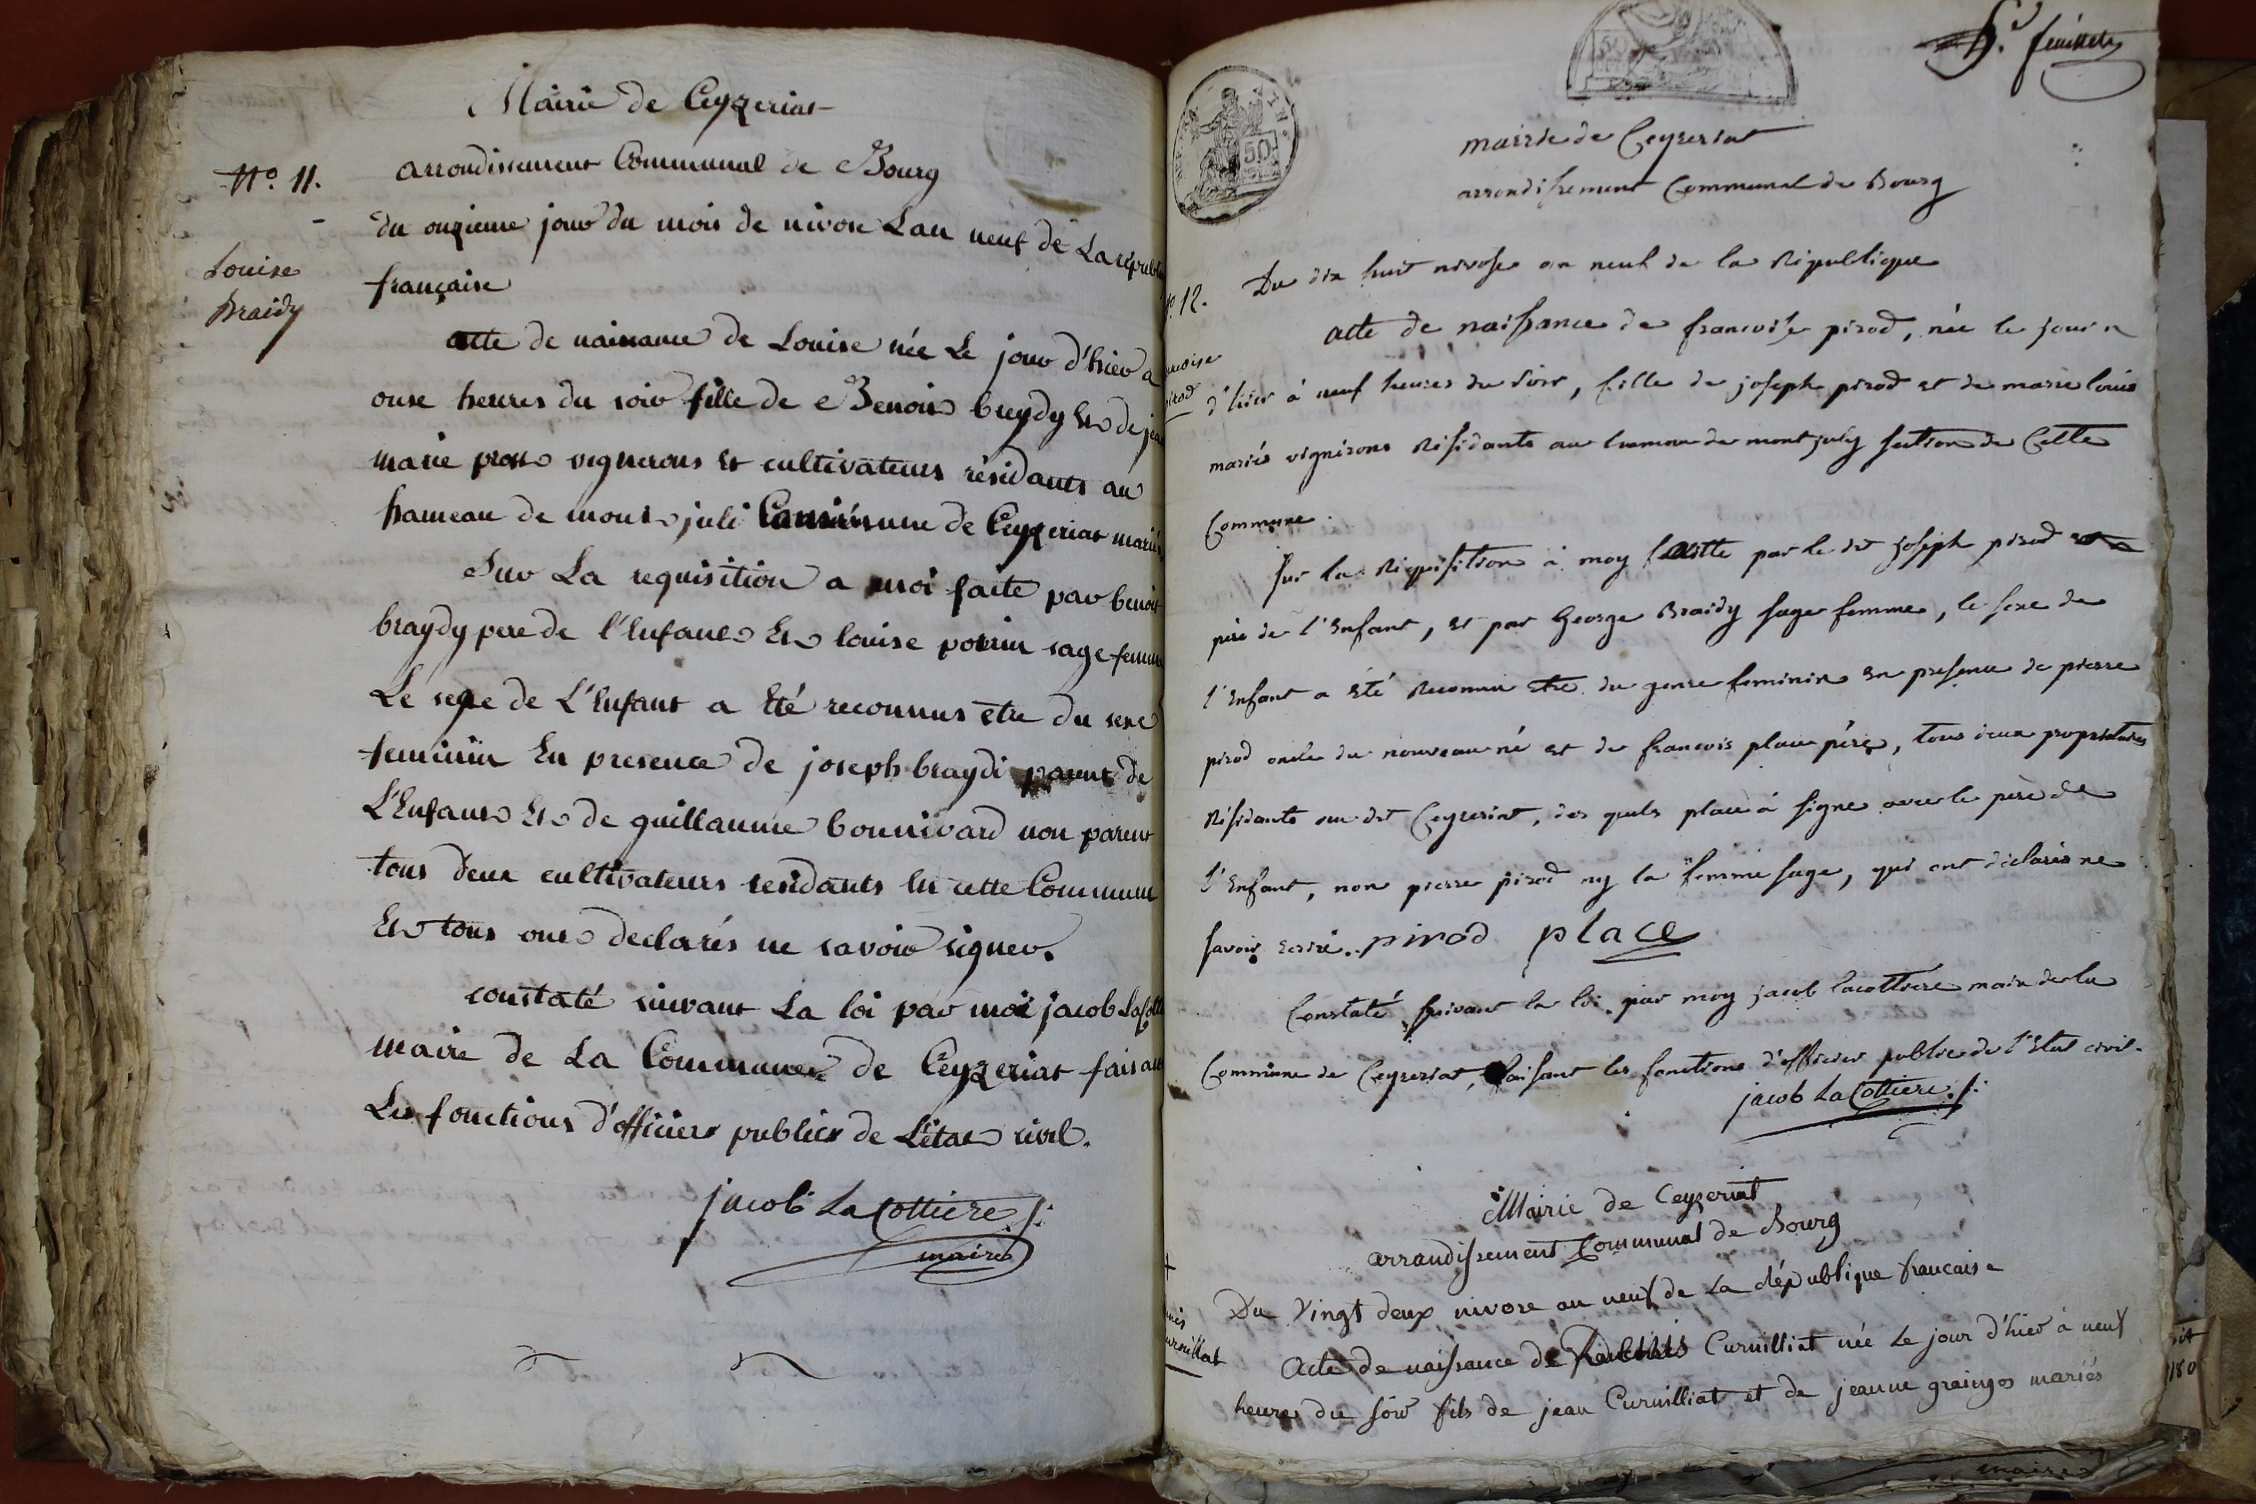 Mairie de Ceyzeriat
arrondissement Communal de Bourg
N.° 11.
du onzieme jour du mois de nivose L'an neuf de La republi
française
Louise
Braidy
acte de naissance de Louise née Le jour d'hier a
onse heures du soir fille de Benoit breydy Et de jea
marie vignerons et cultivateurs résidants au
hameau de mont juli Commune de Ceyzeriat mariés
Sur La requisition a moi faite par benoit
braydy pere de l'Enfant Et louise perrin sage femme
Le sexe de L'Enfant a Eté reconnus etre du sexe
feminin En presence de joseph braydi parent de
L'Enfant Et de guillaume bonnivard non parent
tous deux cultivateurs residants En cette Commune
Et tous ont declarés ne savoir signer.
constaté suivant La loi par moi jacob La Cott
maire de La Commune de Ceyzeriat faisant
Les fonctions d'officier public de L'état civil.
jacob La Cottiere
maire
50
5.e feuillet
mairie de Ceyzeriat
arrondissement Communal de Bourg
o 12.
Du dix huit nivose an neuf de la République
ncoise
pirod
acte de naissance de francoise pirod, née le jour
d'hier à neuf heures du soir, fille de joseph pirod et de marie louis
mariés vignerons Résidants au hameau de mont july section de Cette
Commune.
sur la Réquisition à moy faitte par le dit joseph pirod
père de l'Enfant, et par George Braidy sage femme, le sexe de
l'Enfant a été Reconnu etre du genre feminin en presence de pierre
pirod oncle du nouveau né et de francois place père, tous deux propriétaires
Résidants au dit Ceyzeriat, des quels place à signé avec le père de
l'Enfant, non pierre pirod ny la femme sage, qui ont déclarés ne
savoir ecrire. pirod place
Constaté suivant la loi par moy jacob lacottiere maire de la
Commune de Ceyzeriat, faisant les fonctions d'officier public de l'Etat civil.
jacob La Cottiere
Mairie de Ceyzeriat
arrandissement Communal de Bourg
Du Vingt deux nivose an neuf de La république francaise
urnilliat
Acte de naissance de Curnilliat née Le jour d'hier à neuf
heures du soir fils de jean Curnilliat et de jeanne mariés
maire